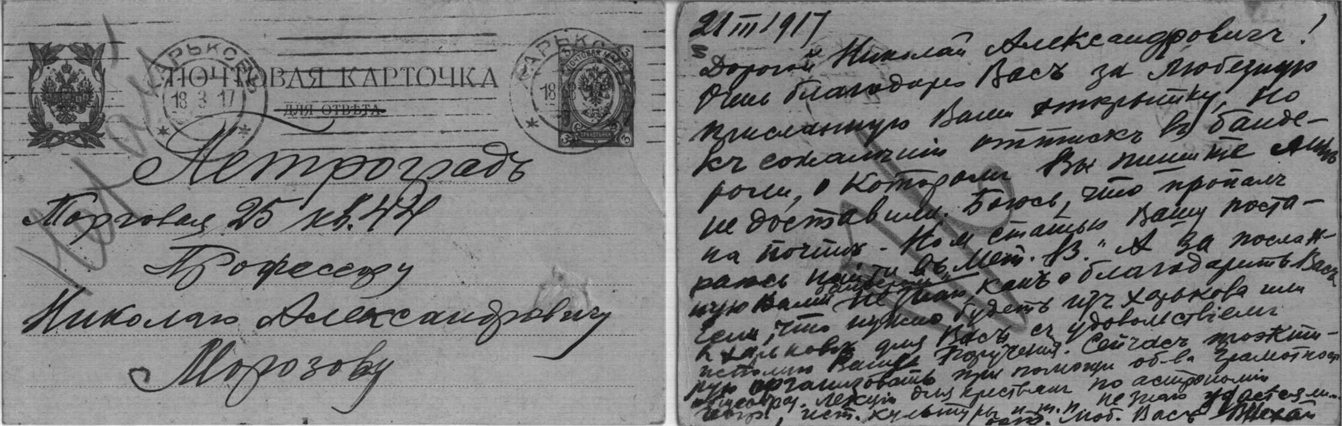 ХАРЬКОВЪ
18 3 17
ПОЧТОВАЯ КАРТОЧКА
ДЛЯ ОТВѢТА
ХАРЬКОВЪ
18
Петроградъ
Торговая 25 кв. 44
Профессору
Николаю Александровичу
Морозову
21 III 1917
Дорогой Николай Александровичъ!
Очень благодарю Васъ за любезную
присланную Вами открытку, но
къ сожалѣнію оттискъ въ банде-
роли, о которомъ Вы пишете мнѣ
не доставили. Боюсь, что пропалъ
на почтѣ. Но статью Вашу поста-
раюсь найти въ А за послан-
ную Вами не знаю какъ благодарить Васъ
что нужно будетъ изъ Харькова или
Харьковѣ для Васъ съ удовольствіемъ
исполню Ваши порученія. Сейчасъ
организовать при помощи об-ва грамотности
лекціи для крестьянъ по астрономіи
ист. культуры и т. п. не знаю удастся ли.
Васъ